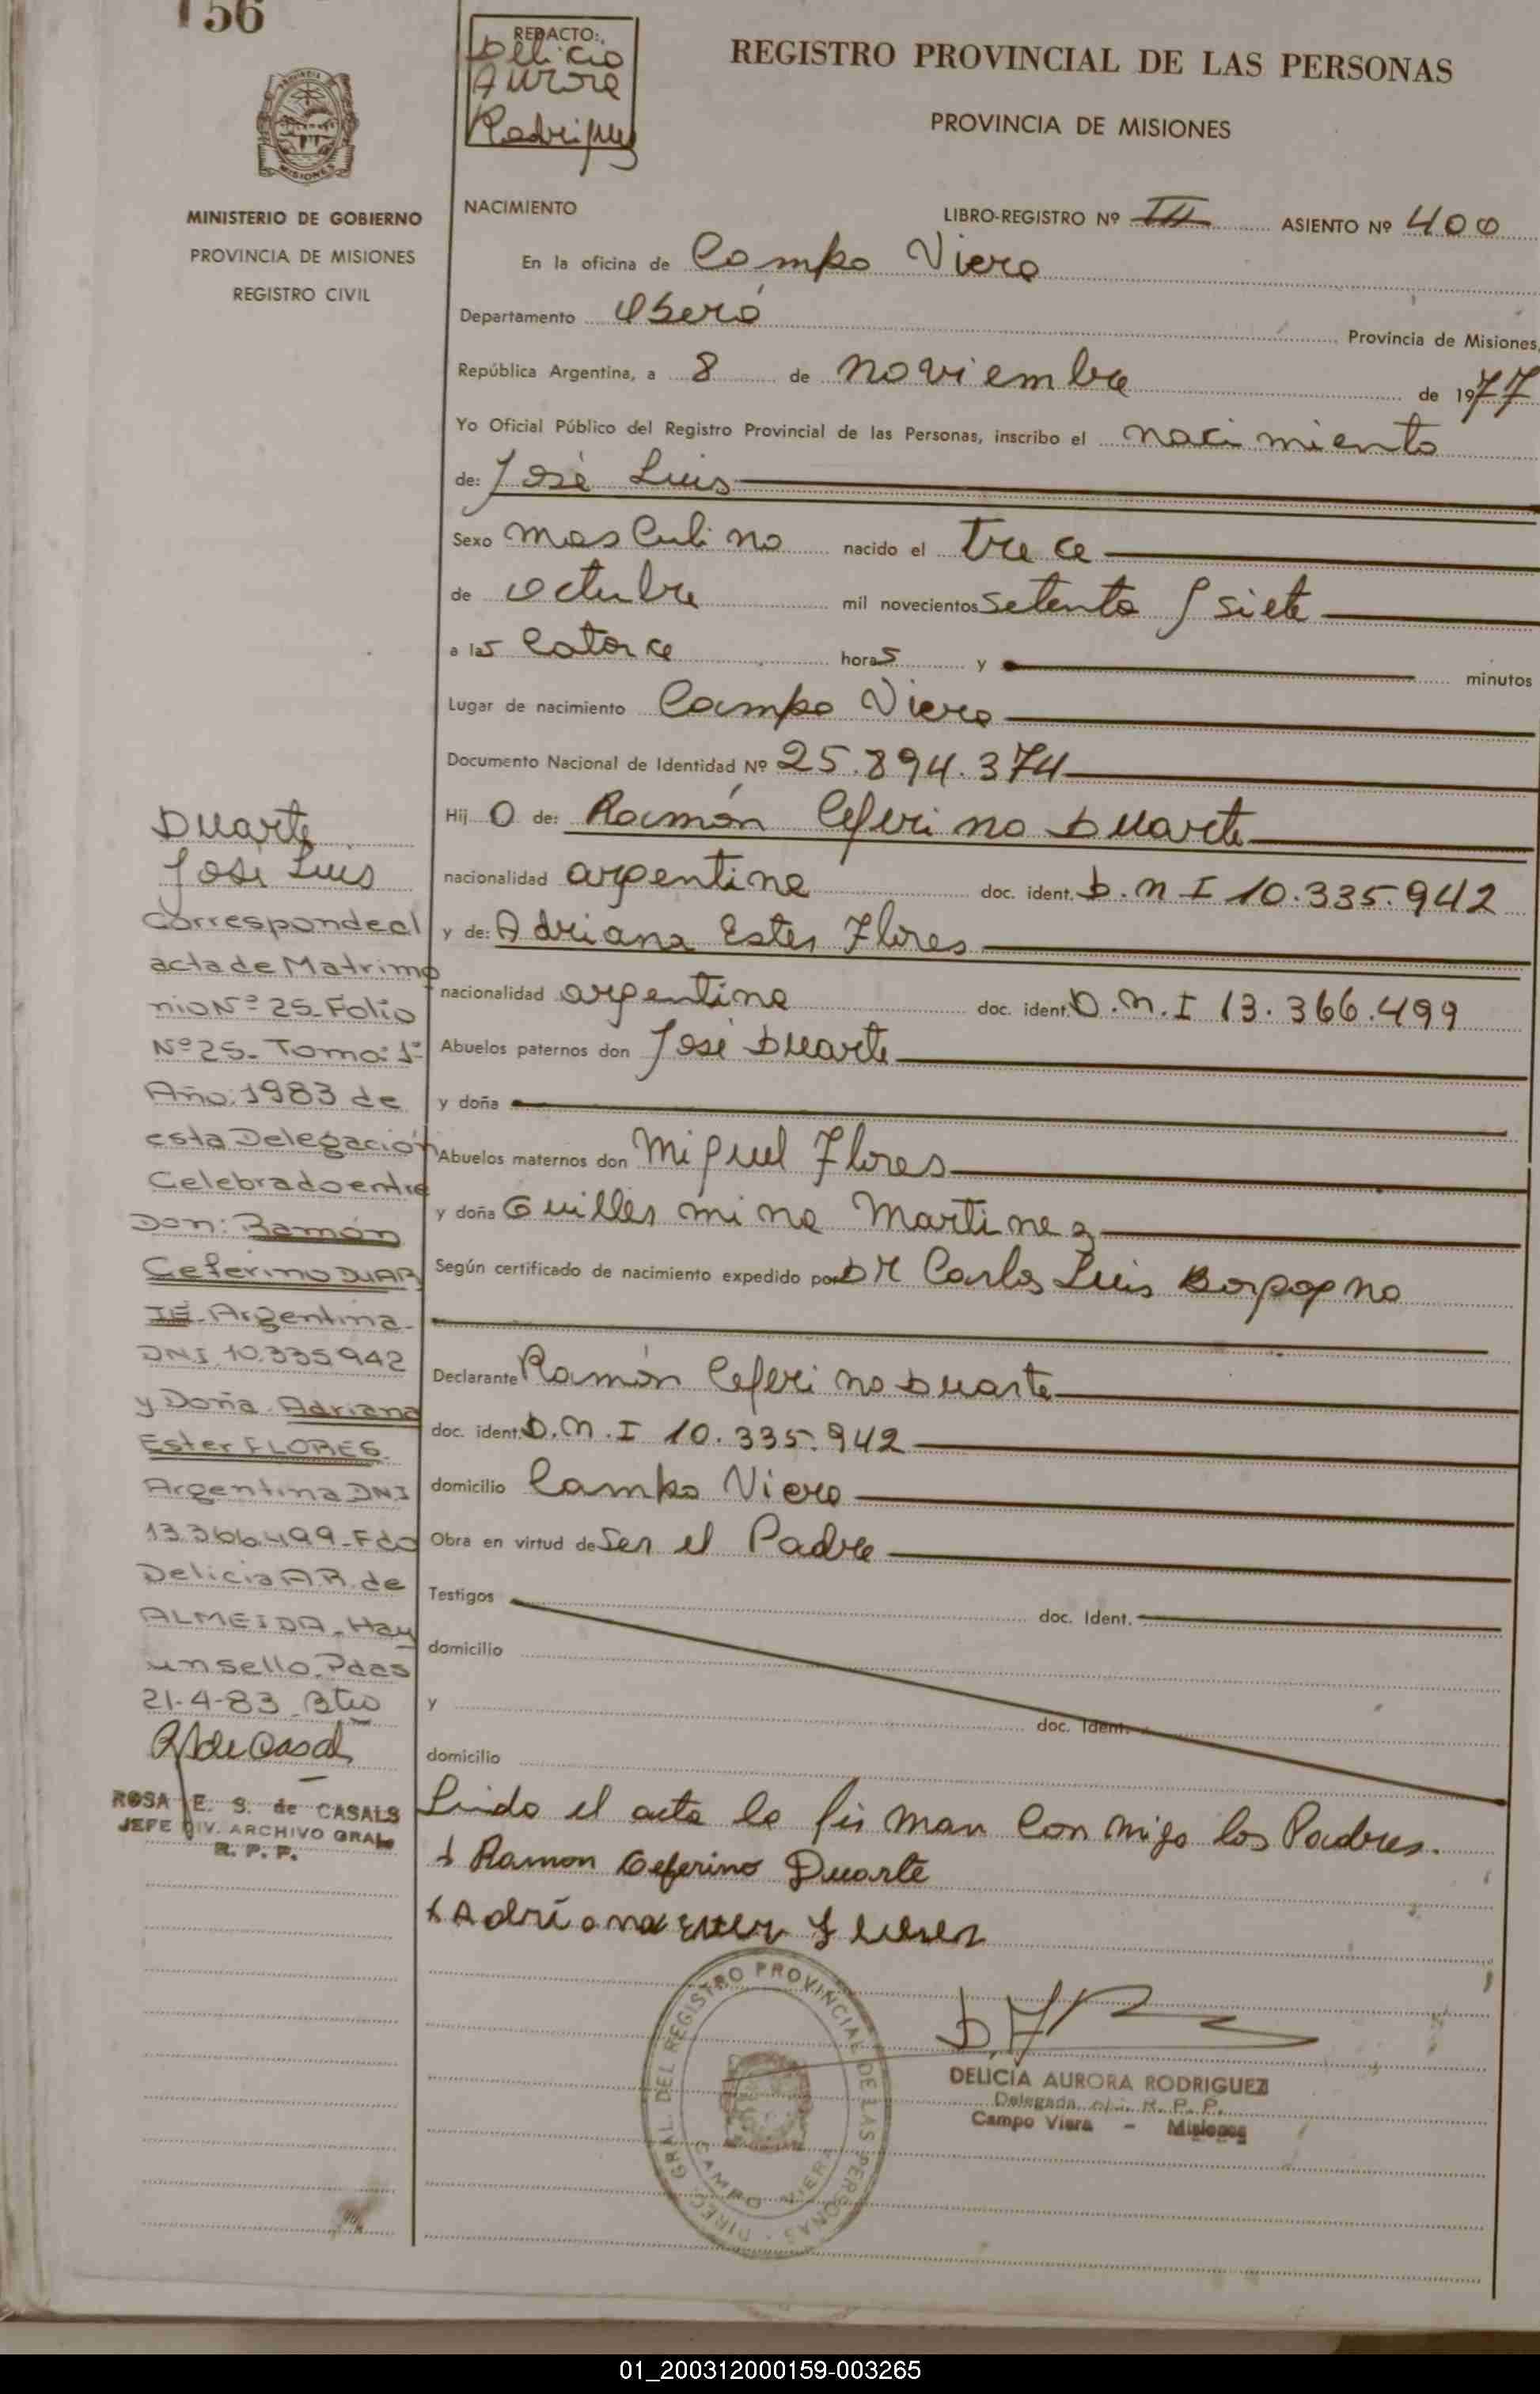 156
REDACTO:
Delicia
Aurora
Rodriguez
REGISTRO PROVINCIAL DE LAS PERSONAS
PROVINCIA DE MISIONES
MISIONES
MINISTERIO DE GOBIERNO
PROVINCIA DE MISIONES
REGISTRO CIVIL
NACIMIENTO
LIBRO-REGISTRO Nº III ASIENTO Nº 400
En la oficina de Campo Viera
Departamento Oberá Provincia de Misiones,
República Argentina, a 8 de noviembre de 1977
Yo Oficial Público del Registro Provincial de las Personas, inscribo el nacimiento
de: José Luis
Sexo masculino nacido el trece
de octubre mil novecientos setenta y siete
a las catorce horas y minutos
Lugar de nacimiento Campo Viera
Documento Nacional de Identidad Nº 25.894.374
Hijo de: Ramón Ceferino Duarte
nacionalidad argentina doc. ident. D.N I 10.335.942
y de: Adriana Ester Flores
nacionalidad argentina doc. ident. D.N.I 13.366.499
Abuelos paternos don José Duarte
y doña
Abuelos maternos don Miguel Flores
y doña Guillermina Martinez
Según certificado de nacimiento expedido por DR Carlos Luis Borgogno
Declarante Ramón Ceferino Duarte
doc. ident. D.N.I 10.335.942
domicilio Campo Viera
Obra en virtud de Ser el Padre
Testigos doc. Ident.
domicilio
y doc. Ident.
domicilio
Leido el acta la firman conmigo los Padres.
Ramon Ceferino Duarte
Adriana Ester Flores
DIREC. GRAL. DEL REGISTRO PROVINCIAL DE LAS PERSONAS
CAMPO VIERA
DELICIA AURORA RODRIGUEZ
Delegada R. P. P.
Campo Viera - Misiones
Duarte
José Luis
Correspondeal
acta de Matrimo
nio Nº 25 Folio
Nº 25- Tomo: 1º
Año: 1983 de
esta Delegación
Celebrado entre
Don: Ramón
Ceferino DUAR
TE-Argentina-
DNI 10.335942
y Doña Adriana
Ester FLORES
Argentina DNI
13.366.499-Fdo
Delicia A.R. de
ALMEIDA-Hay
un sello. Pdas
21-4-83
ROSA E. S. de CASALS
JEFE DIV. ARCHIVO GRAL
R. P. P.
01_200312000159-003265